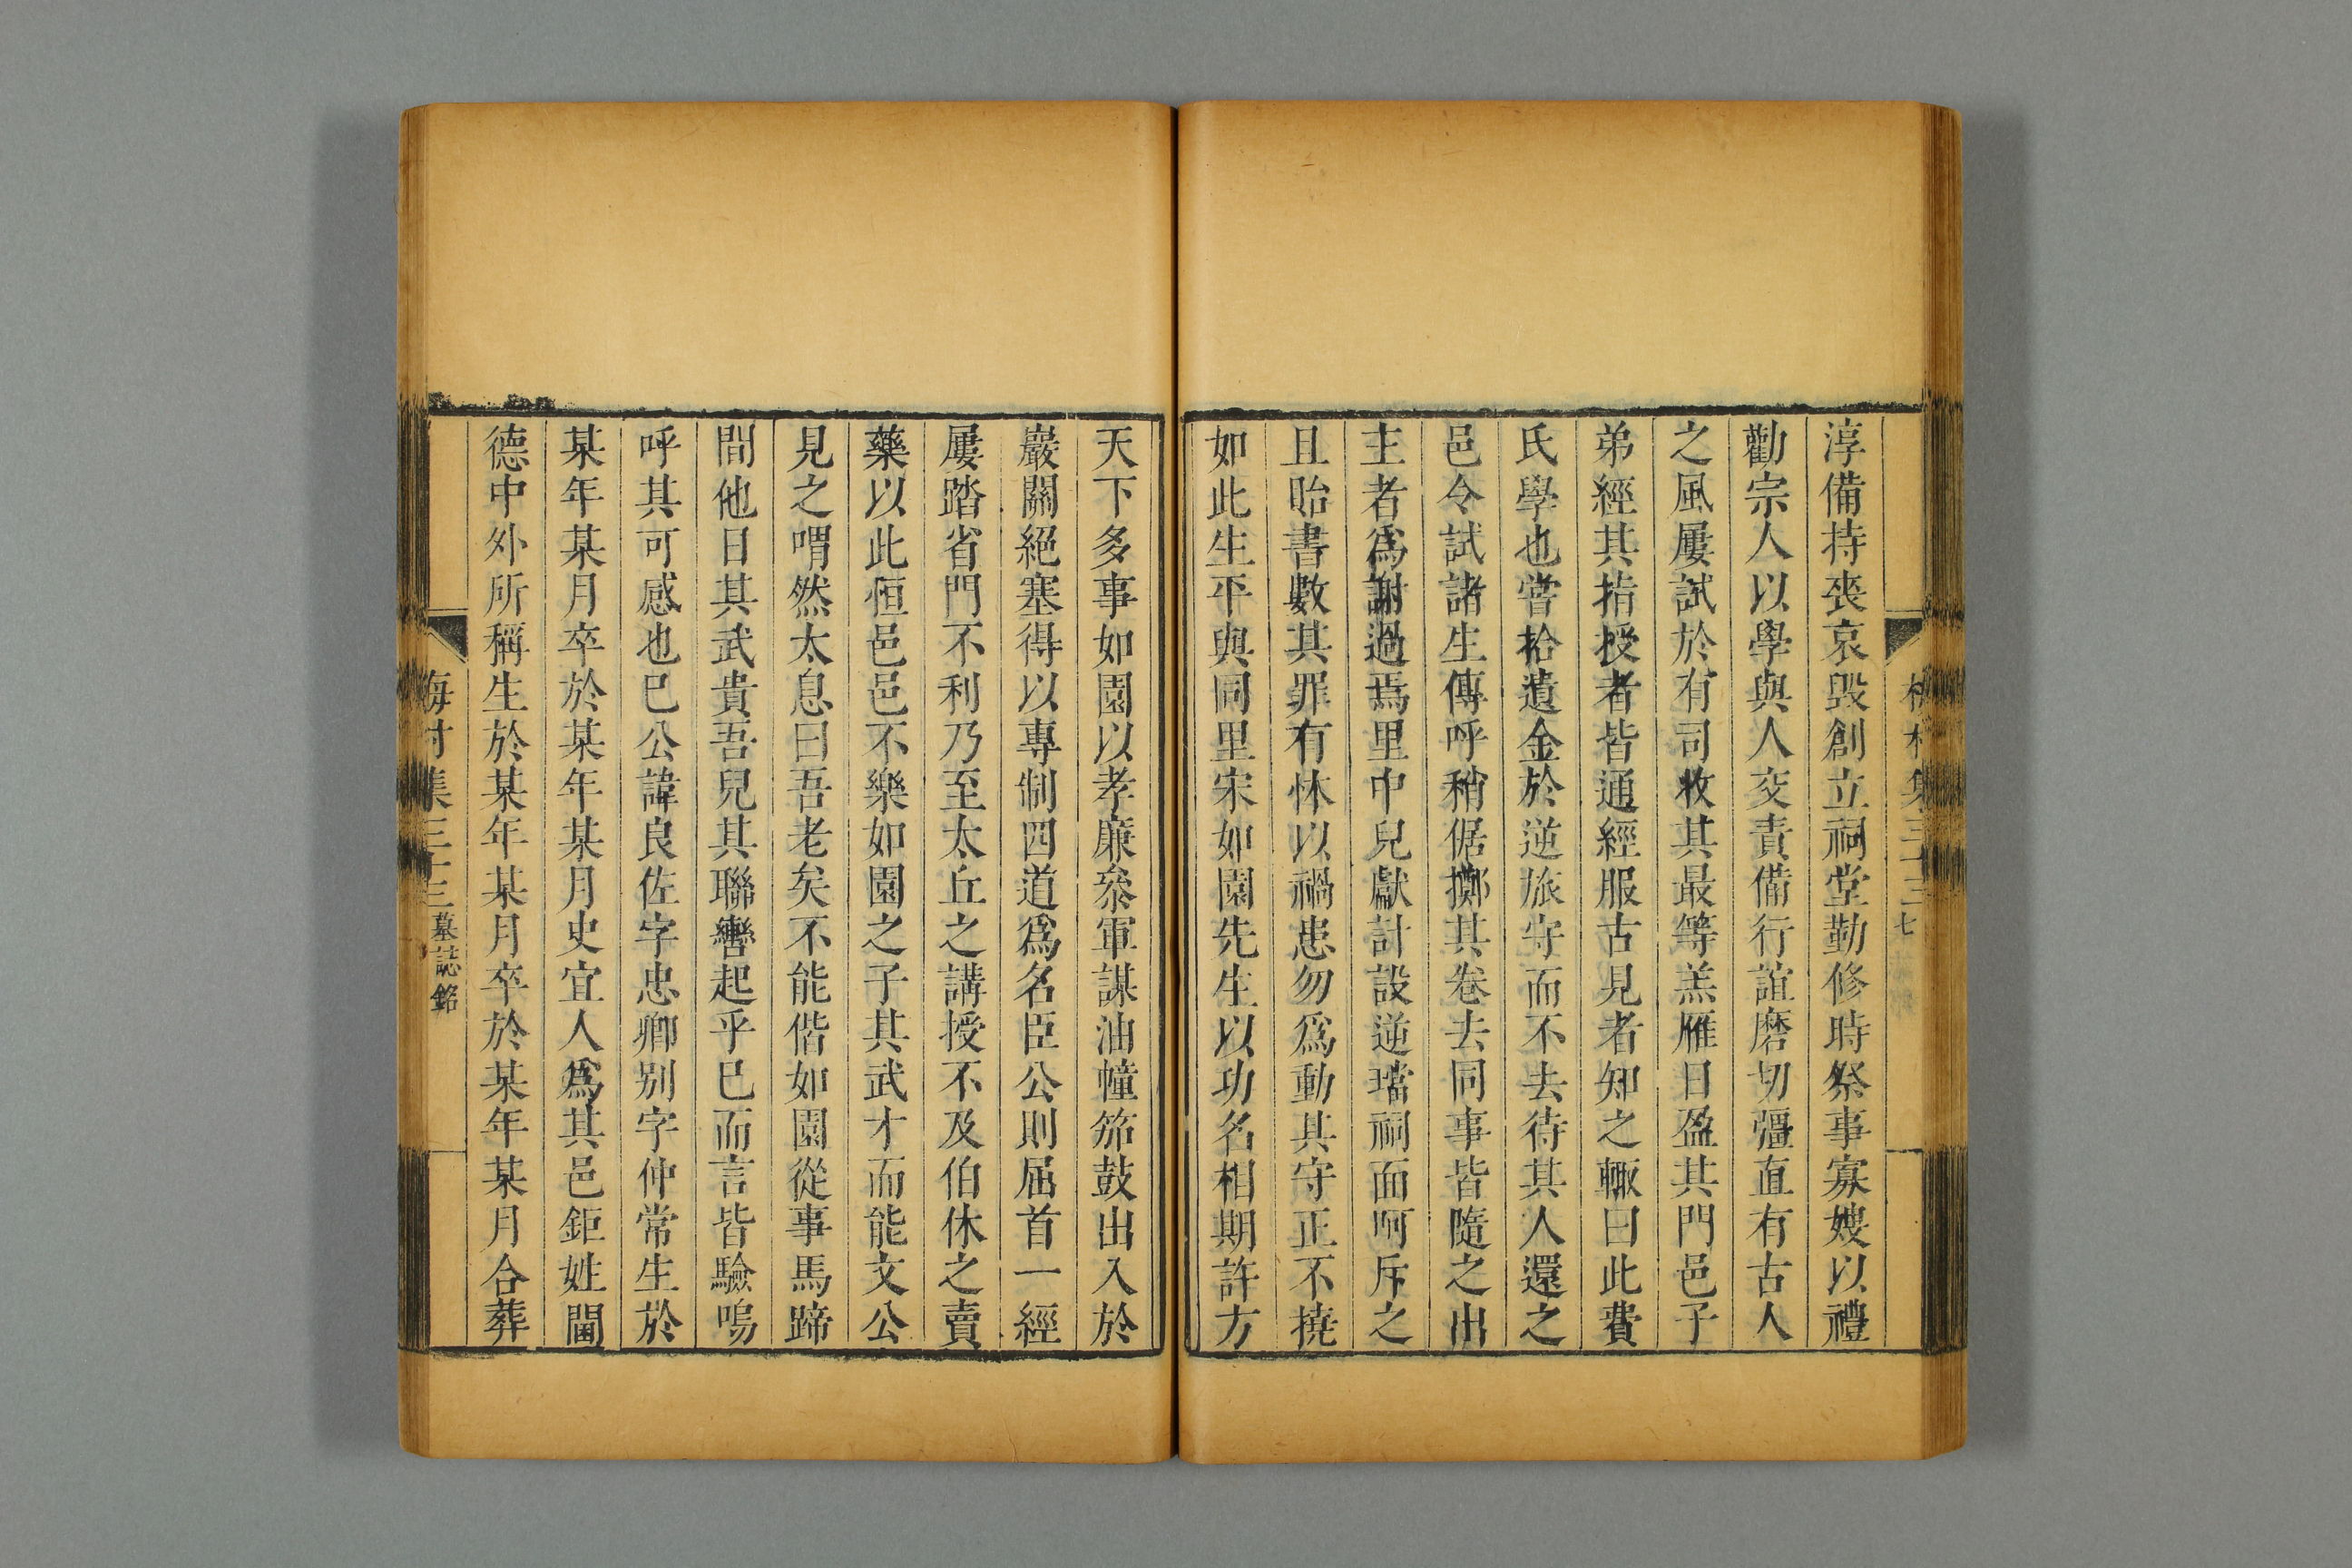 淳備持喪哀毁創立祠堂勤修時祭事寡嫂以禮
勸宗人以學與人交責備行誼磨切彊直有古人
之風屢試於有司收其最等羔雁日盈其門邑子
弟經其指授者皆通經服古見者知之輙曰此費
氏學也嘗拾遺金於逆旅守而不去待其人還之
邑令試諸生傳呼稍倨擲其卷去同事皆隨之出
主者爲謝過焉里中兒獻計設逆璫祠面呵斥之
且貽書數其罪有怵以禍患勿爲動其守正不撓
如此生平與同里宋如園先生以功名相期許方
天下多事如園以孝廉叅軍謀油幢笳鼓出入於
巖關絕塞得以專制四道爲名臣公則屈首一經
屢踏省門不利乃至太丘之講授不及伯休之賣
藥以此恒邑邑不樂如園之子其武才而能文公
見之喟然太息曰吾老矣不能偕如園從事馬蹄
間他日其武貴吾兒其聯轡起乎已而言皆驗嗚
呼其可感也已公諱良佐字忠卿别字仲常生於
某年某月卒於某年某月史宜人爲其邑鉅姓閫
德中外所稱生於某年某月卒於某年某月合葬
梅村集三十三 墓誌銘